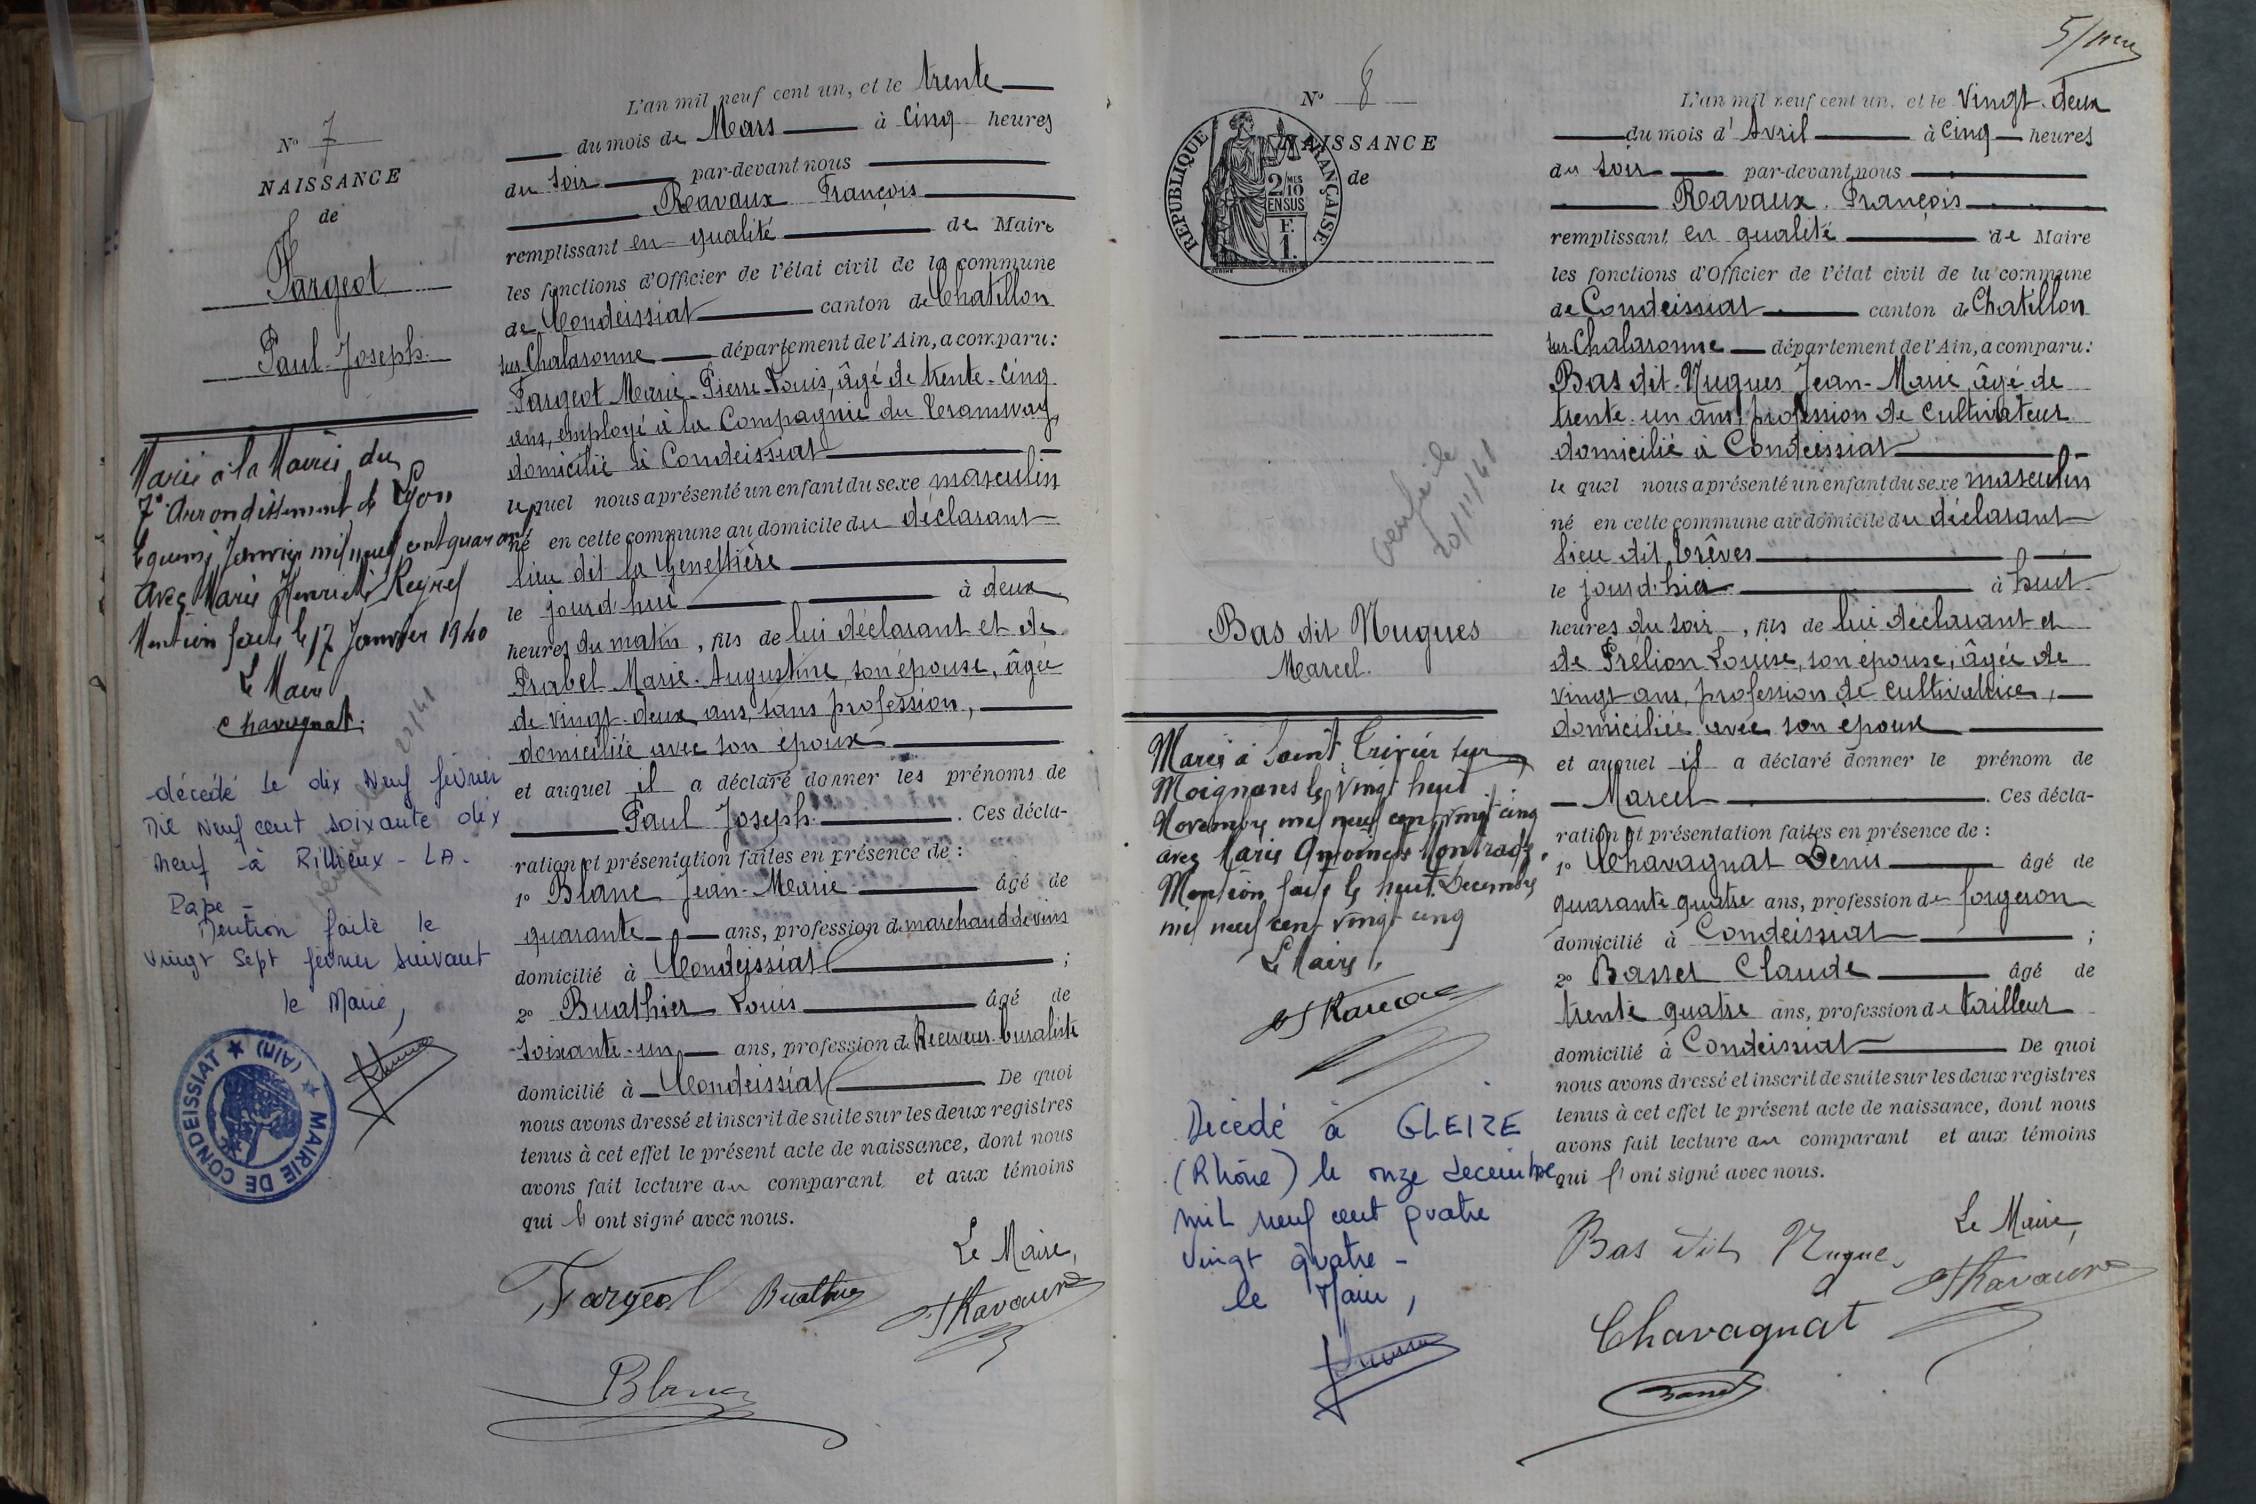 N° 7
NAISSANCE
de
Fargeot
Paul-Joseph.
Marié à la Mairie du
7e Arrondissement de Lyon
le quinze Janvier mil neuf cent quarante
avec Marie Henriette Reynel
Mention faite le 17 Janvier 1940
Le Maire
Chavagnat.
décédé le dix neuf février
mil neuf cent soixante dix
neuf à Rillieux-LA-
Pape -
Mention faite le
vingt sept février suivant
le Maire,
MAIRIE DE CONDEISSIAT ★ (AIN) ★
L'an mil neuf cent un, et le trente
du mois de Mars à cinq heures
du soir par-devant nous
Ravaux François
remplissant en qualité de Maire
les fonctions d'Officier de l'état civil de la commune
de Condeissiat canton de Chatillon
sur Chalaronne département de l'Ain, a comparu:
Fargeot Marie-Pierre-Louis, âgé de trente-cinq
ans, employé à la Compagnie du Tramway,
domicilié à Condeissiat
lequel nous a présenté un enfant du sexe masculin
né en cette commune au domicile du déclarant
lieu dit la Genettière
le jourd'hui à deux
heures du matin, fils de lui déclarant et de
Prabel Marie-Augustine, son épouse, âgée
de vingt-deux ans, sans profession,
domiciliée avec son époux
et auquel il a déclaré donner les prénoms de
Paul Joseph. Ces décla-
ration et présentation faites en présence de :
1° Blanc Jean-Marie âgé de
quarante ans, profession de marchand de vins
domicilié à Condeissiat ;
2° Buathier Louis âgé de
soixante-un ans, profession de Receveur buraliste
domicilié à Condeissiat De quoi
nous avons dressé et inscrit de suite sur les deux registres
tenus à cet effet le présent acte de naissance, dont nous
avons fait lecture au comparant et aux témoins
qui l' ont signé avec nous.
Le Maire,
Fargeot Buathier F Ravaux
Blanc
5/
N° 8
NAISSANCE
de
RÉPUBLIQUE FRANÇAISE
2/10 EN SUS
F. 1.
verifié le
20/11/41
Bas dit Nugues
Marcel.
Marié à Saint Trivier sur
Moignans le vingt huit
Novembre mil neuf cent vingt cinq
avec Marie Antoinette Montrade.
Mention faite le huit Décembre
mil neuf cent vingt cinq
Le Maire,
F Ravaux
Décédé à GLEIZE
(Rhône) le onze decembre
mil neuf cent quatre
vingt quatre -
le Maire,
L'an mil neuf cent un, et le vingt-deux
du mois d'Avril à cinq heures
du soir par-devant nous
Ravaux François
remplissant en qualité de Maire
les fonctions d'Officier de l'état civil de la commune
de Condeissiat canton de Chatillon
sur Chalaronne département de l'Ain, a comparu:
Bas dit-Nugues Jean-Marie, âgé de
trente-un ans, profession de cultivateur
domicilié à Condeissiat
lequel nous a présenté un enfant du sexe masculin
né en cette commune au domicile du déclarant
lieu dit Crêves
le jourd'hier à huit
heures du soir, fils de lui déclarant et
de Prelion Louise, son épouse, âgée de
vingt ans, profession de cultivatrice,
domiciliée avec son époux
et auquel il a déclaré donner le prénom de
Marcel. Ces décla-
ration et présentation faites en présence de :
1° Chavagnat Denis âgé de
quarante quatre ans, profession de forgeron
domicilié à Condeissiat ;
2° Basset Claude âgé de
trente quatre ans, profession de tailleur
domicilié à Condeissiat De quoi
nous avons dressé et inscrit de suite sur les deux registres
tenus à cet effet le présent acte de naissance, dont nous
avons fait lecture au comparant et aux témoins
qui l' ont signé avec nous.
Le Maire,
Bas dit Nugue F Ravaux
Chavagnat
Basset